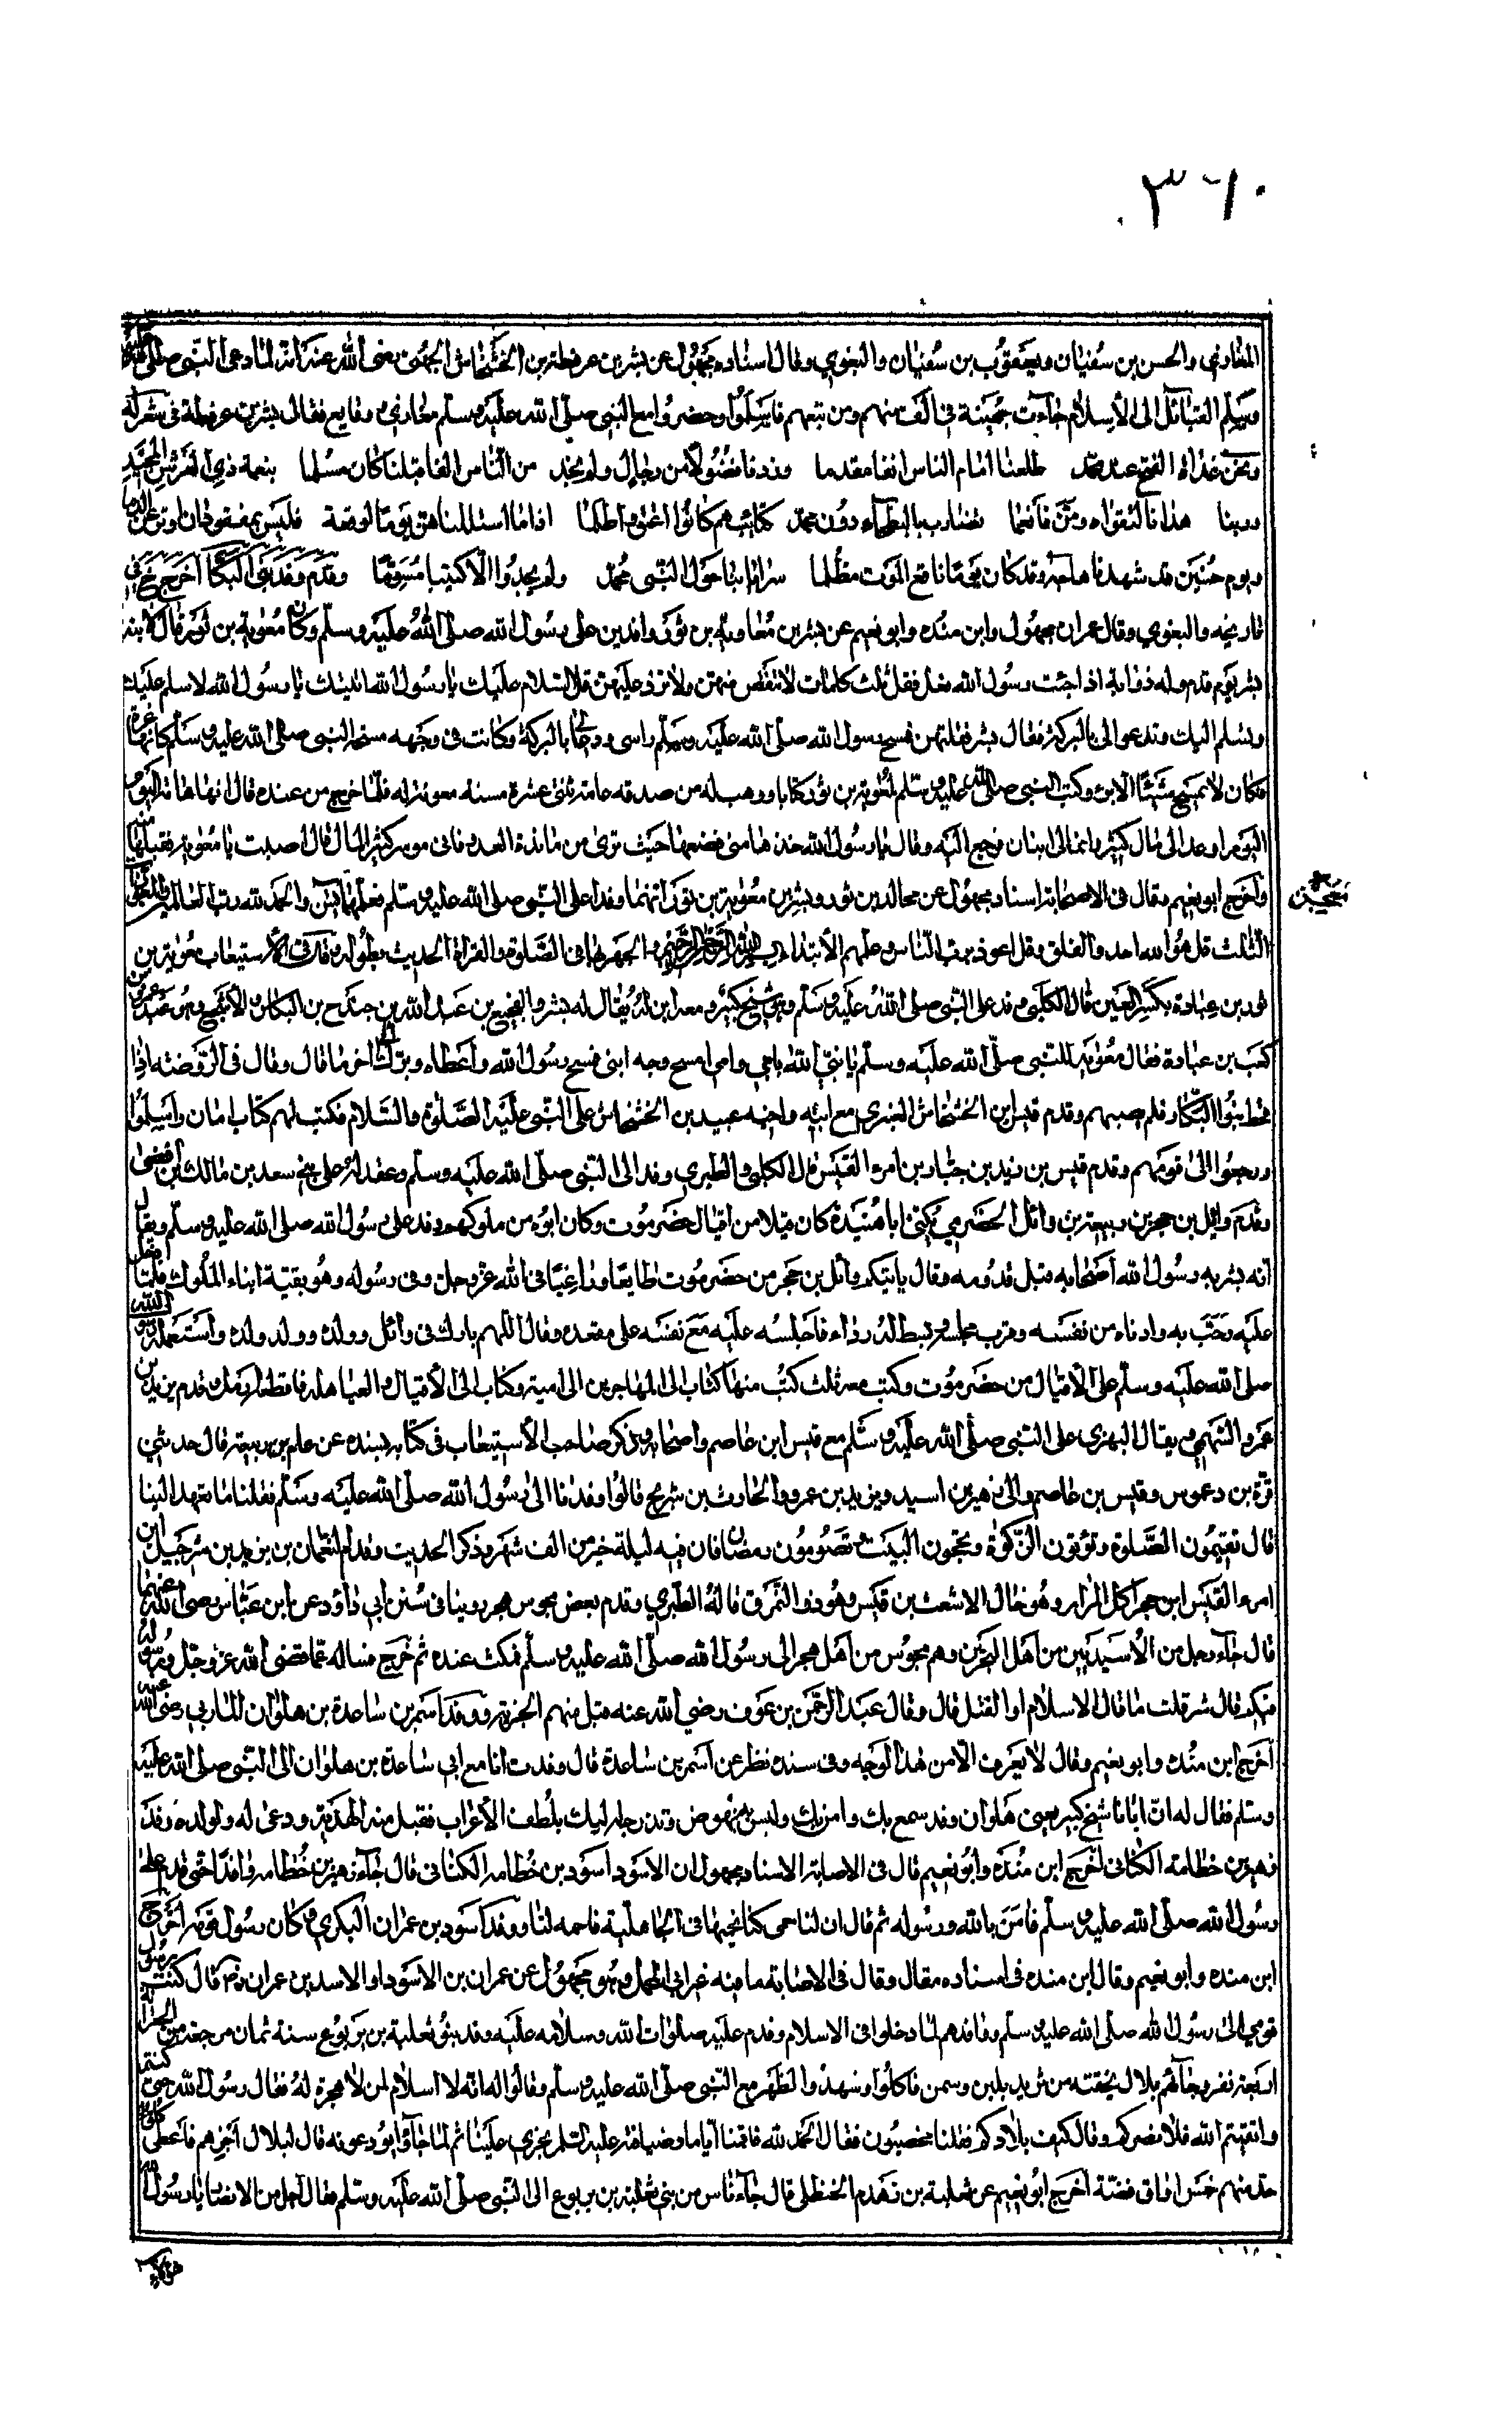 ٣٦٠
والحسن بن سفيان ويعقوب بن سفيان والبغوي وقال اسناده مجهول عن بشر بن عرفطة بن الخشخاش الجهني رضى الله عنه انه لما دعى النبي صلى الله عليه
وسلم القبائل الى الاسلام جاءت جهينة في الف منهم ومن تبعهم فاسلموا وحضروا مع النبي صلى الله عليه وسلم مغازي ووقايع فقال بشر بن عرفطة في شعر له
ونحن غداة الفتح عند محمد طلعنا امام الناس الفا مقدما وزدنا فضولا من رجال ولم يجد من الناس الفا قبلنا كان مسلما بنعمة ذي العرش المجيد
وربنا هدانا لتقواه ومن فانعما نضارب بالبطحاء دون محمد كتائب هم كانوا اعق واظلما اذا ما استللناهن يوما لوقعة فليس بمغمودات او ترعف الدما
ويوم حنين قد شهدنا هياجه وقد كان يوما ناقع الموت مظلما حول النبي محمد ولم يجدوا الا كميا مسوما وقدم وفد بني البكا اخرج خ في
تاريخه والبغوي وقال عمران مجهول وابن منده وابو نعيم عن بشر بن معاوية بن ثور وافدين على رسول الله صلى الله عليه وسلم وكان معوية بن ثور قال لابنه
بشر يوم قدم وله ذوابة اذا جئت رسول الله فقل ثلث كلمات لا تنقص منهن ولا تزد عليهن قل السلام عليك يا رسول الله اتيتك يا رسول الله لاسلم عليك
ونسلم اليك وتدعو الى بالبركة فقال بشر فقلتهن فمسح رسول الله صلى الله عليه وسلم راسي ودعا لي بالبركة وكانت في وجهه مسحة النبي صلى الله عليه وسلم كانها غرة
فكان لا يمسح شيئا الا برئ وكتب النبي صلى الله عليه وسلم لمعوية بن ثور كتابا ووهب له من صدقه عامة ثنتى عشرة مسنة معونة له فلما خرج من عنده قال انما هامة اليوم
فرجع اليه وقال يا رسول الله خذها مني فضعها حيث ترى من العدو فاني موسر كثير المال قال اصبت يا معوية فقبلها منه
واخرج ابو نعيم وقال في الاصابة اسناده مجهول عن مجالد بن ثور وبشر بن معوية بن ثور انهما وفدا على النبي صلى الله عليه وسلم فعلمهما يس والحمد لله رب العالمين والمعوذات
الثلث قل هو الله احد والفلق وقل اعوذ برب الناس وعلمهم الابتداء ببسم الله الرحمن الرحيم والجهر بها في الصلوة والقراءة الحديث بطوله وقال في الاستيعاب معوية بن
ثور بن عبادة بكسر العين قال الكلبي وفد على النبي صلى الله عليه وسلم وهو شيخ كبير ومعه ابن له يقال له بشر والفجيع بن عبد الله بن جندح بن البكاء والاصم وهو عبد عمرو بن
كعب بن عبادة فقال معوية للنبي صلى الله عليه وسلم يا نبي الله بابي وامي امسح وجه ابني فمسح رسول الله واعطاه وبرك اخر ما قال وقال في الروضة اذا
قحط بنو البكاء فلم يصبهم وقدم قيس بن الخشخاش العنبري مع ابيه واخيه عبيد بن الخشخاش على النبي عليه الصلوة والسلام فكتب لهم كتاب امان واسلموا
ورجعوا الى قومهم وقدم قيس بن زيد بن جبار بن امرء القيس قال الكلبي والطبري وفد الى النبي صلى الله عليه وسلم وعقد له على بني سعد بن مالك بن افصى
وقدم وايل بن حجر بن ربيعة بن وائل الحضرمي يكنى ابا هنيدة كان قيلا من اقيال حضرموت وكان ابوه من ملوكهم وفد على رسول الله صلى الله عليه وسلم ويقال
انه بشر به رسول الله اصحابه قبل قدومه وقال ياتيكم وائل بن حجر من حضرموت طايعا وراغبا في الله عز وجل وفي رسوله وهو بقية ابناء الملوك فلما دخل
عليه رحب به وادناه من نفسه وقرب مجلسه وبسط له رداءه فاجلسه عليه مع نفسه على مقعده وقال اللهم بارك في وائل وولده وولد ولده واستعمله رسول الله
صلى الله عليه وسلم على الاقيال من حضرموت وكتب معه ثلث كتب منها كتاب الى المهاجر بن ابي امية وكتاب الى الاقيال والعباهلة فاقطعه وقدم يزيد بن
عمرو التميمي ويقال البهزي على النبي صلى الله عليه وسلم مع قيس ابن عاصم واصحابه وذكر صاحب الاستيعاب في كتابه بسنده عن عايذ بن ربيعة قال حدثني
قرة بن دعموص وقيس بن عاصم وابي زهير بن اسيد ويزيد بن عمرو والحارث بن شريح قالوا وفدنا الى رسول الله صلى الله عليه وسلم فقلنا ما تعهد الينا
قال تقيمون الصلوة وتؤتون الزكوة وتحجون البيت وتصومون رمضان فان فيه ليلة خير من الف شهر وذكر الحديث وقدم النعمان بن يزيد بن شرحبيل ابن
امرء القيس ابن حجر اكل المرار وهو خال الاشعث بن قيس وهو ذو النمرق قاله الطبري وقدم بعض مجوس هجر روينا في سنن ابي داؤد عن ابن عباس رضى الله عنهما
قال جاء رجل من الاسبذيين من اهل البحرين وهم مجوس من اهل هجر الى رسول الله صلى الله عليه وسلم فمكث عنده ثم خرج فسالته ما قضى الله عز وجل ورسوله
فيكم قال شر قلت ما قال الاسلام او القتل قال وقال عبد الرحمن بن عوف رضي الله عنه قبل منهم الجزية ووفد اسمر بن ساعدة بن هلوان المازني رضى الله عنه
اخرج ابن منده وابو نعيم وقال لا يعرف الا من هذا الوجه وفي سنده نظر عن اسمر بن ساعدة قال وفدت انا مع ابي ساعدة بن هلوان الى النبي صلى الله عليه
وسلم فقال له ان ابانا شيخ كبير يعني هلوان وقد سمع بك وامن بك وليس به نهوض وقد وجه اليك بلطف الاعراب فقبل منه الهدية ودعى له ولولده ووفد
زهير بن خطامة الكناني اخرج ابن منده وابو نعيم قال في الاصابة الاسناد مجهول ان الاسود اسود بن خطامة الكناني قال جاء زهير بن خطامة وافدا حتى قدم على
رسول الله صلى الله عليه وسلم فامن بالله ورسوله ثم قال ان لنا حمى كنا نحميها في الجاهلية فاحمه لنا ووفد اسود بن عمران البكري وكان رسول قومه اخرج
ابن منده وابو نعيم وقال ابن منده في اسناده مقال وقال في الاصابة ما فيه غير ابي المحجل وهو مجهول عن عمران بن الاسود او الاسد بن عمران قال كنت رسول
قومي الى رسول الله صلى الله عليه وسلم ووافدهم لما دخلوا في الاسلام وقدم عليه صلوات الله وسلامه عليه وفد بنو ثعلبة بن يربوع سنة ثمان مرجعه من الجعرانة
اربعة نفر وجاءهم بلال بجفنة من ثريد بلبن وسمن فاكلوا وشهدوا الظهر مع النبي صلى الله عليه وسلم وقالوا له انه لا اسلام لمن لا هجرة له فقال رسول الله حيث كنتم
واتقيتم الله فلا يضركم وقال كيف بلادكم فقلنا مخصبون فقال الحمد لله فاقمنا اياما وضيافته عليه السلام تجري علينا ثم لما جاؤا يودعونه قال لبلال اجزهم فاعطى كل
واحد منهم خمس اواق فضة اخرج ابو نعيم عن ثعلبة بن زهدم الحنظلي قال جاء ناس من بني ثعلبة بن يربوع الى النبي صلى الله عليه وسلم فقال رجل من الانصار يا رسول الله
هؤلاء